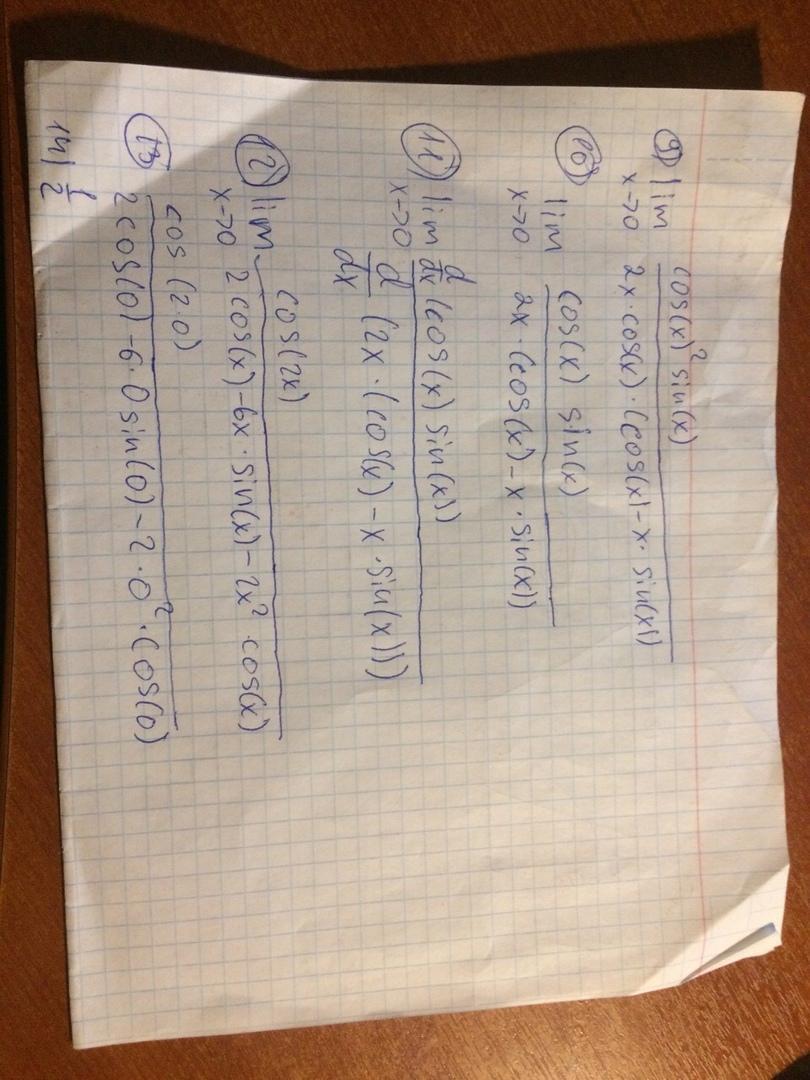 ⑨ lim x→0 cos(x)² sin(x) / 2x·cos(x)·(cos(x)-x·sin(x))
⑩ lim x→0 cos(x) sin(x) / 2x·(cos(x)-x·sin(x))
⑪ lim x→0 d/dx (cos(x) sin(x)) / d/dx (2x·(cos(x)-x·sin(x)))
⑫ lim x→0 cos(2x) / 2cos(x)-6x·sin(x)-2x²·cos(x)
⑬ cos(2·0) / 2cos(0)-6·0sin(0)-2·0²·cos(0)
14) 1/2